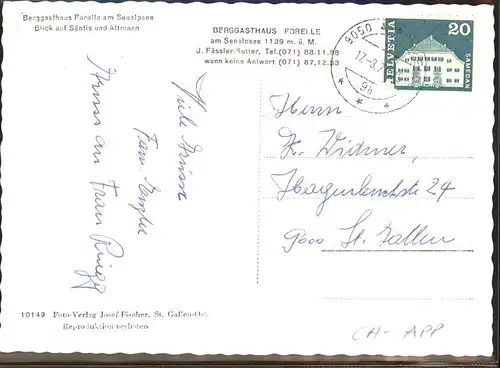 Berggasthaus Forelle am Seealpsee
Blick auf Säntis und Altmann
BERGGASTHAUS FORELLE
am Seealpsee 1139 m. ü. M.
J. Fässler-Sutter, Tel. (071) 88.11.88
wenn keine Antwort (071) 87.12.33
9050
9h
HELVETIA
20
SAMEDAN
Viele Grüsse
Fam.
Gruss an Frau
Herrn
K. Widmer
24
9000 St. Gallen
10149 Foto-Verlag Josef Fischer, St. Gallen-Ost.
Reproduktion verboten
CH-APP